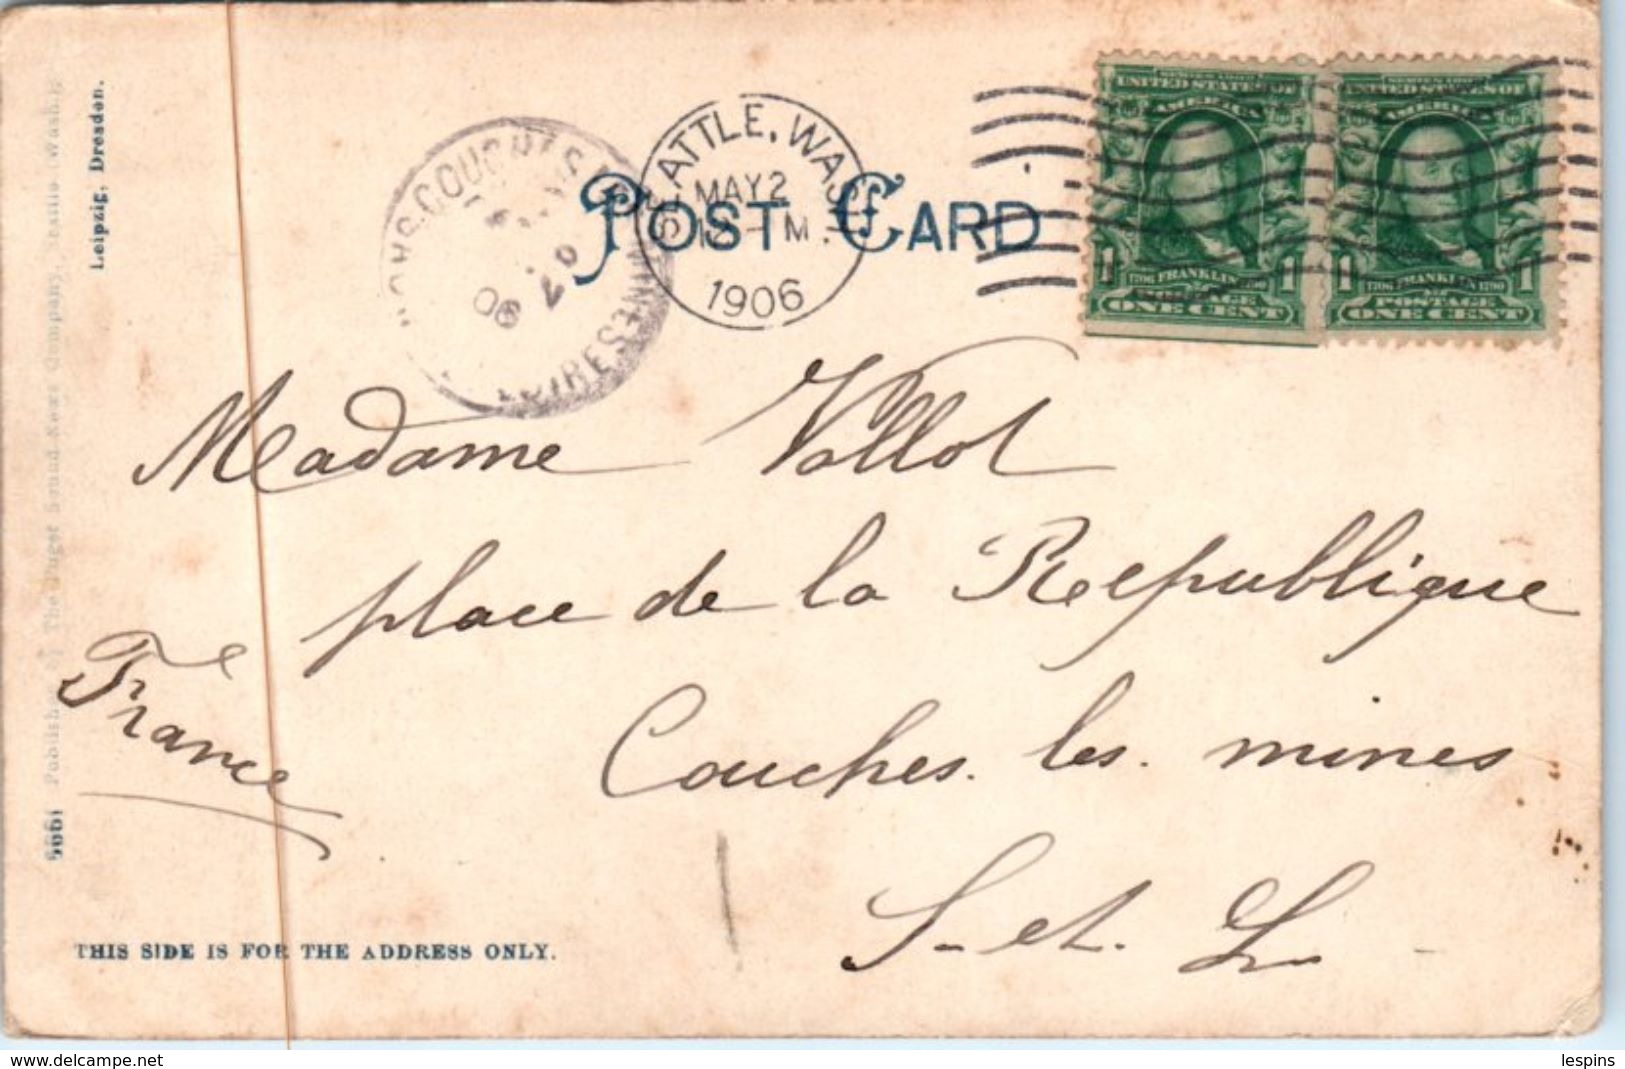 POST CARD
SEATTLE, WASH.
MAY 2
M.
1906
UNITED STATES OF
AMERICA
1 1706 FRANKLIN 1790 1
POSTAGE
ONE CENT
UNITED STATES OF
AMERICA
1 1706 FRANKLIN 1790 1
POSTAGE
ONE CENT
06
Madame Vollot
place de la Republique
Couches. les. mines
S- et. L-
France
THIS SIDE IS FOR THE ADDRESS ONLY.
Published by The Puget Sound News Company, Seattle (Wash.).
Leipzig, Dresden.
delcampe.net
lespins